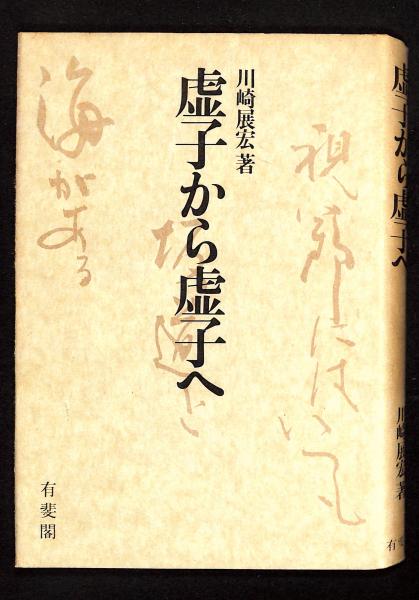 川崎展宏 著
虚子から虚子へ
視野にはいつも
坂道と
海がある
有斐閣
虚子から虚子へ
川崎展宏著
有